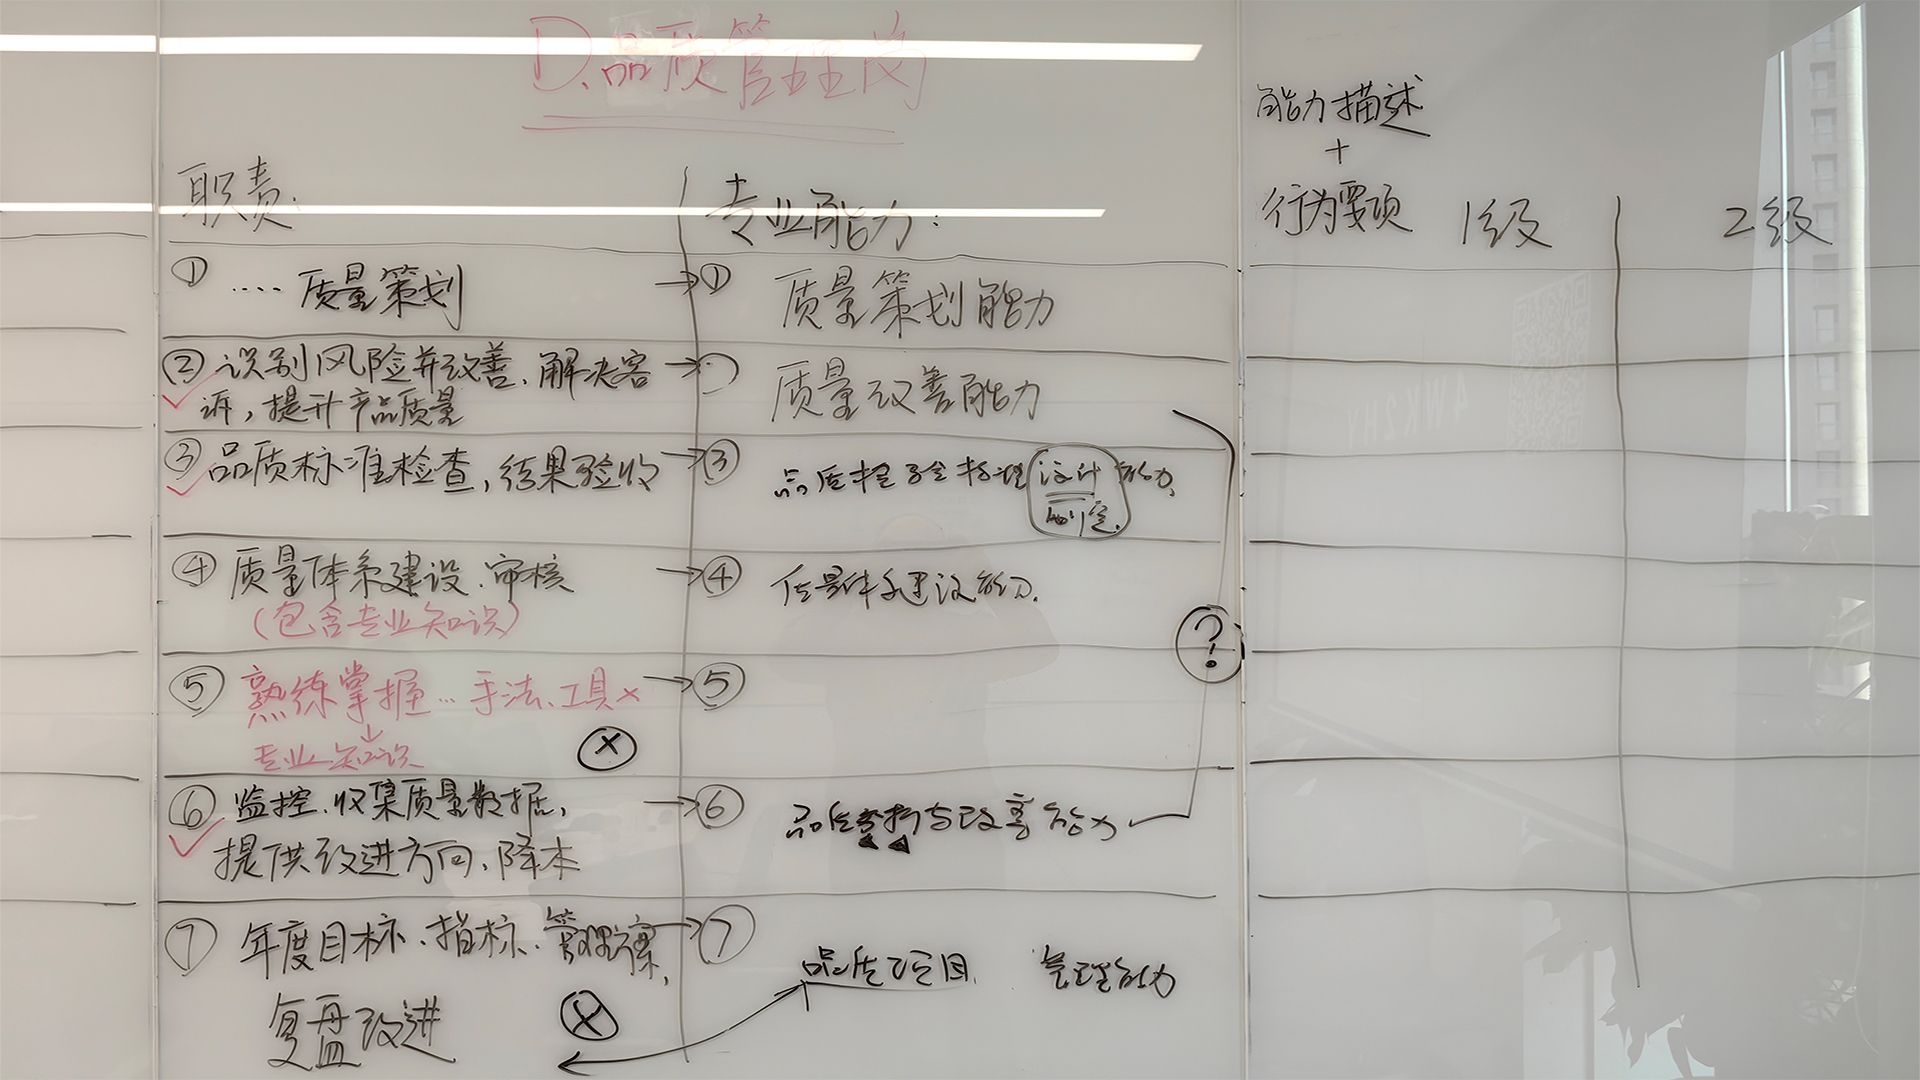 D.品质管理岗
职责:
专业能力:
能力描述
+
行为要项
1级
2级
① ····质量策划
→① 质量策划能力
② 识别风险并改善、解决客
诉,提升产品质量
→ 质量改善能力
③ 品质标准检查,结果验收
→③ 品质 设计 能力
制定.
④ 质量体系建设、审核
(包含专业知识)
→④ 质量体系建设能力.
?
⑤ 熟练掌握…手法、工具×
→⑤
↓
专业知识
×
⑥ 监控、收集质量数据,
提供改进方向、降本
→⑥ 品质 与改善能力
⑦ 年度目标、指标、管理方案,
复盘改进
→⑦ 品质项目 管理能力
×
4WK2HY